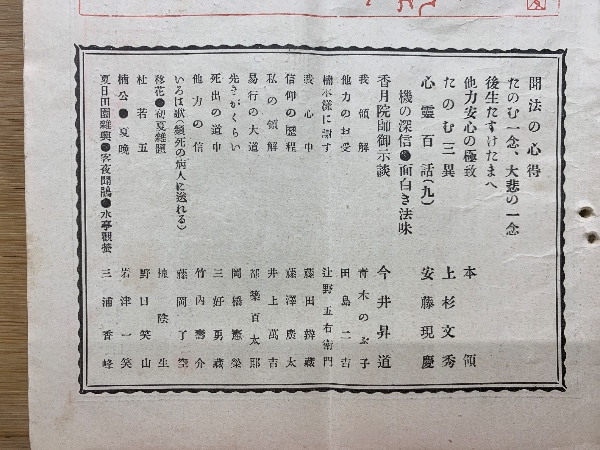 聞法の心得
たのむ一念、大悲の一念
後生たすけたまへ
他力安心の極致 本領
たのむ三異 上杉文秀
心靈百話(九) 安藤現慶
機の深信●面白き法味
香月院師御示談 今井昇道
我領解 青木のぶ子
他力のお受 田島二吉
楠本樣に謝す 辻野五右衛門
我心中 藤田辨藏
信仰の歷程 藤澤廣太
私の領解 井上萬吉
易行の大道 都築百太郎
先きがくらい 岡橋憲榮
死出の道中 三好勇藏
他力の信 竹内壽介
いろは歌(瀕死の病人に送れる) 藤岡了空
移花●初夏雜題 陰生
杜若五 野口笑山
楠公●夏晩 岩津一笑
夏日田園雜興●客夜聞鵑●水亭觀螢 三浦香峰